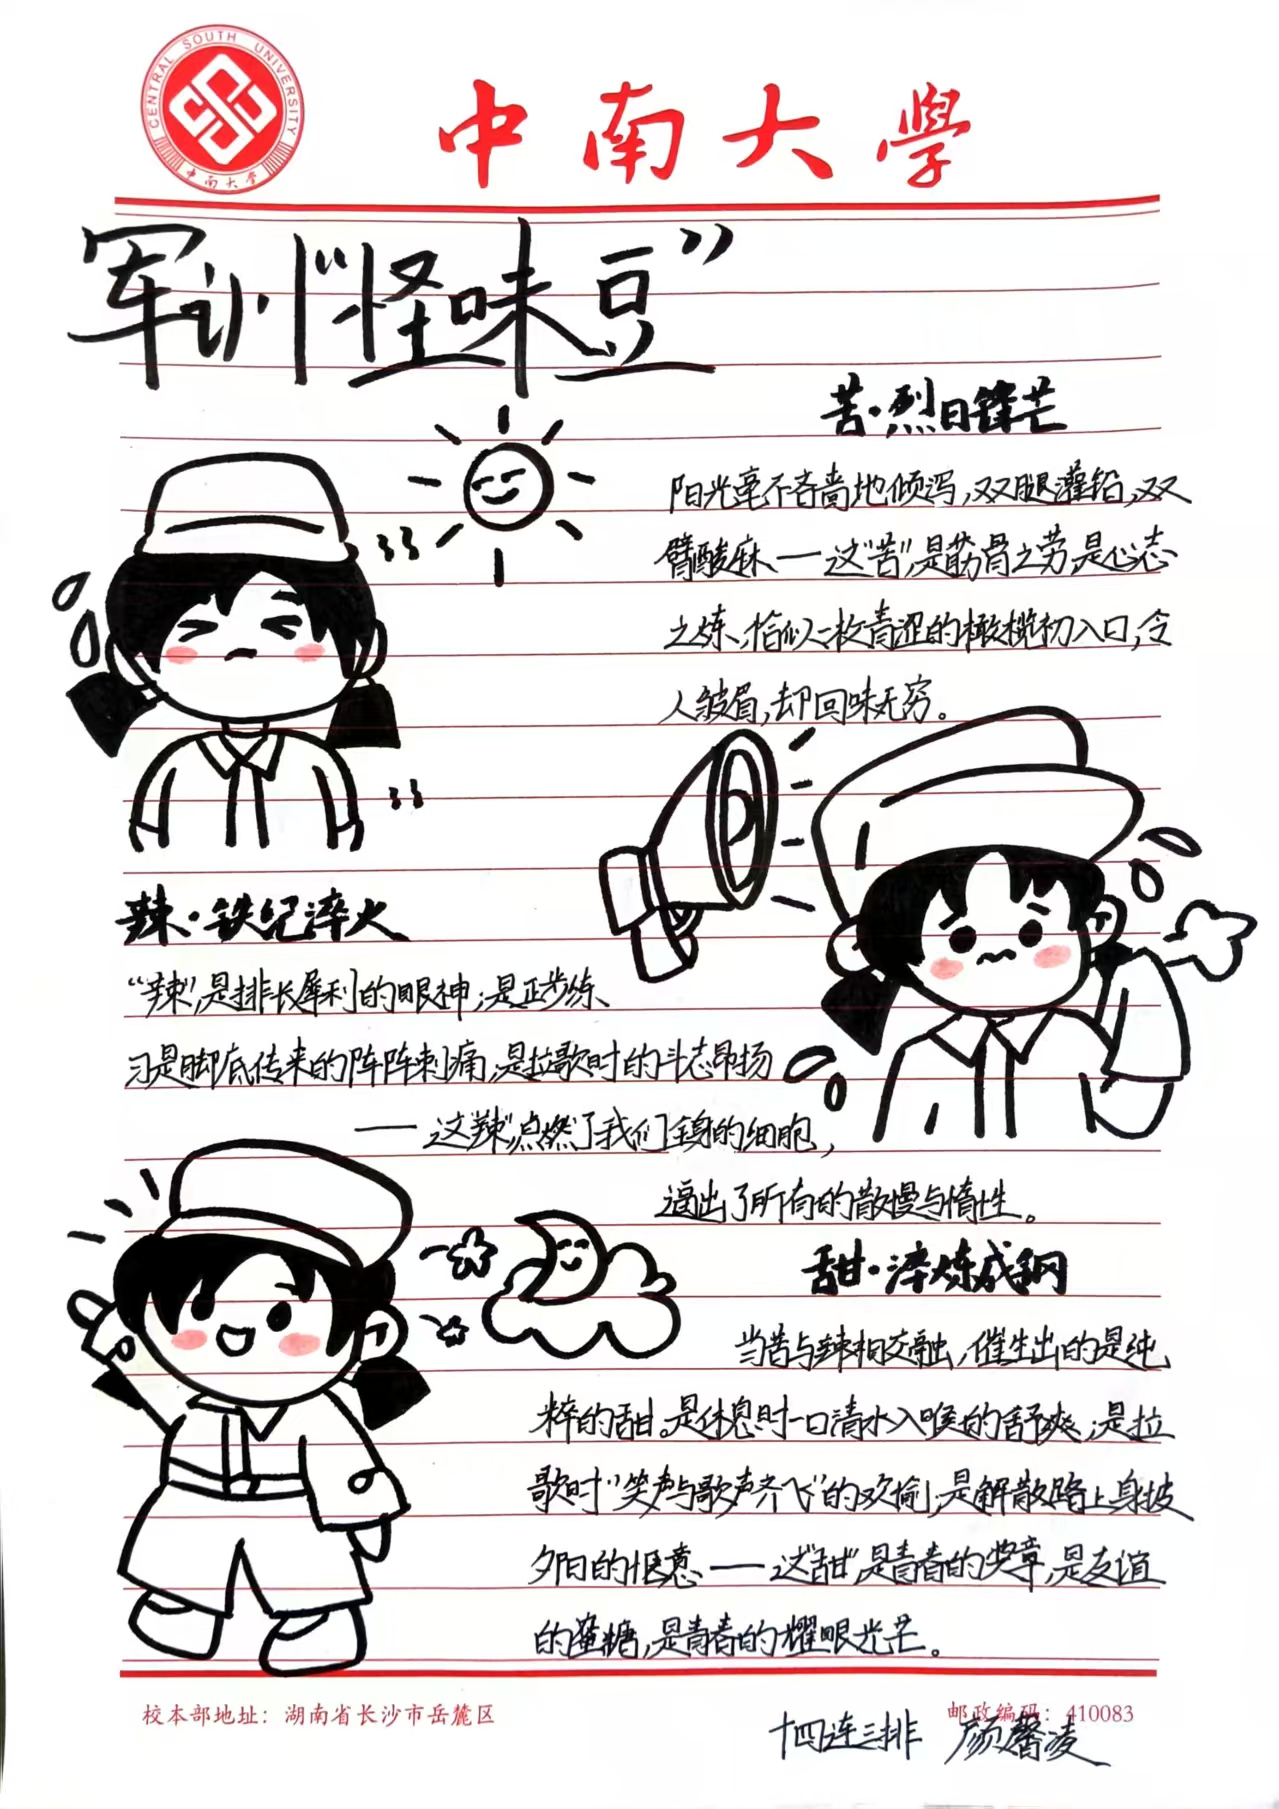 CENTRAL SOUTH UNIVERSITY
中南大学
中南大學
军训“怪味豆”
苦·烈日锋芒
阳光毫不吝啬地倾泻,双腿灌铅,双
臂酸麻——这“苦”,是筋骨之劳,是心志
之炼、恰似一枚青涩的橄榄初入口,令
人皱眉,却回味无穷。
辣·铁纪淬火
“辣”,是排长犀利的眼神;是正步练
习是脚底传来的阵阵刺痛;是拉歌时的斗志昂扬
——这“辣”,点燃了我们全身的细胞,
逼出了所有的散慢与惰性。
甜·淬炼成钢
当苦与辣相交融,催生出的是纯
粹的甜。是休息时一口清水入喉的舒爽;是拉
歌时“笑声与歌声齐飞”的欢愉;是解散路上身披
夕阳的惬意——这“甜”,是青春的奖章,是友谊
的蜜糖,是青春的耀眼光芒。
校本部地址：湖南省长沙市岳麓区
邮政编码：410083
十四连三排 颜馨凌